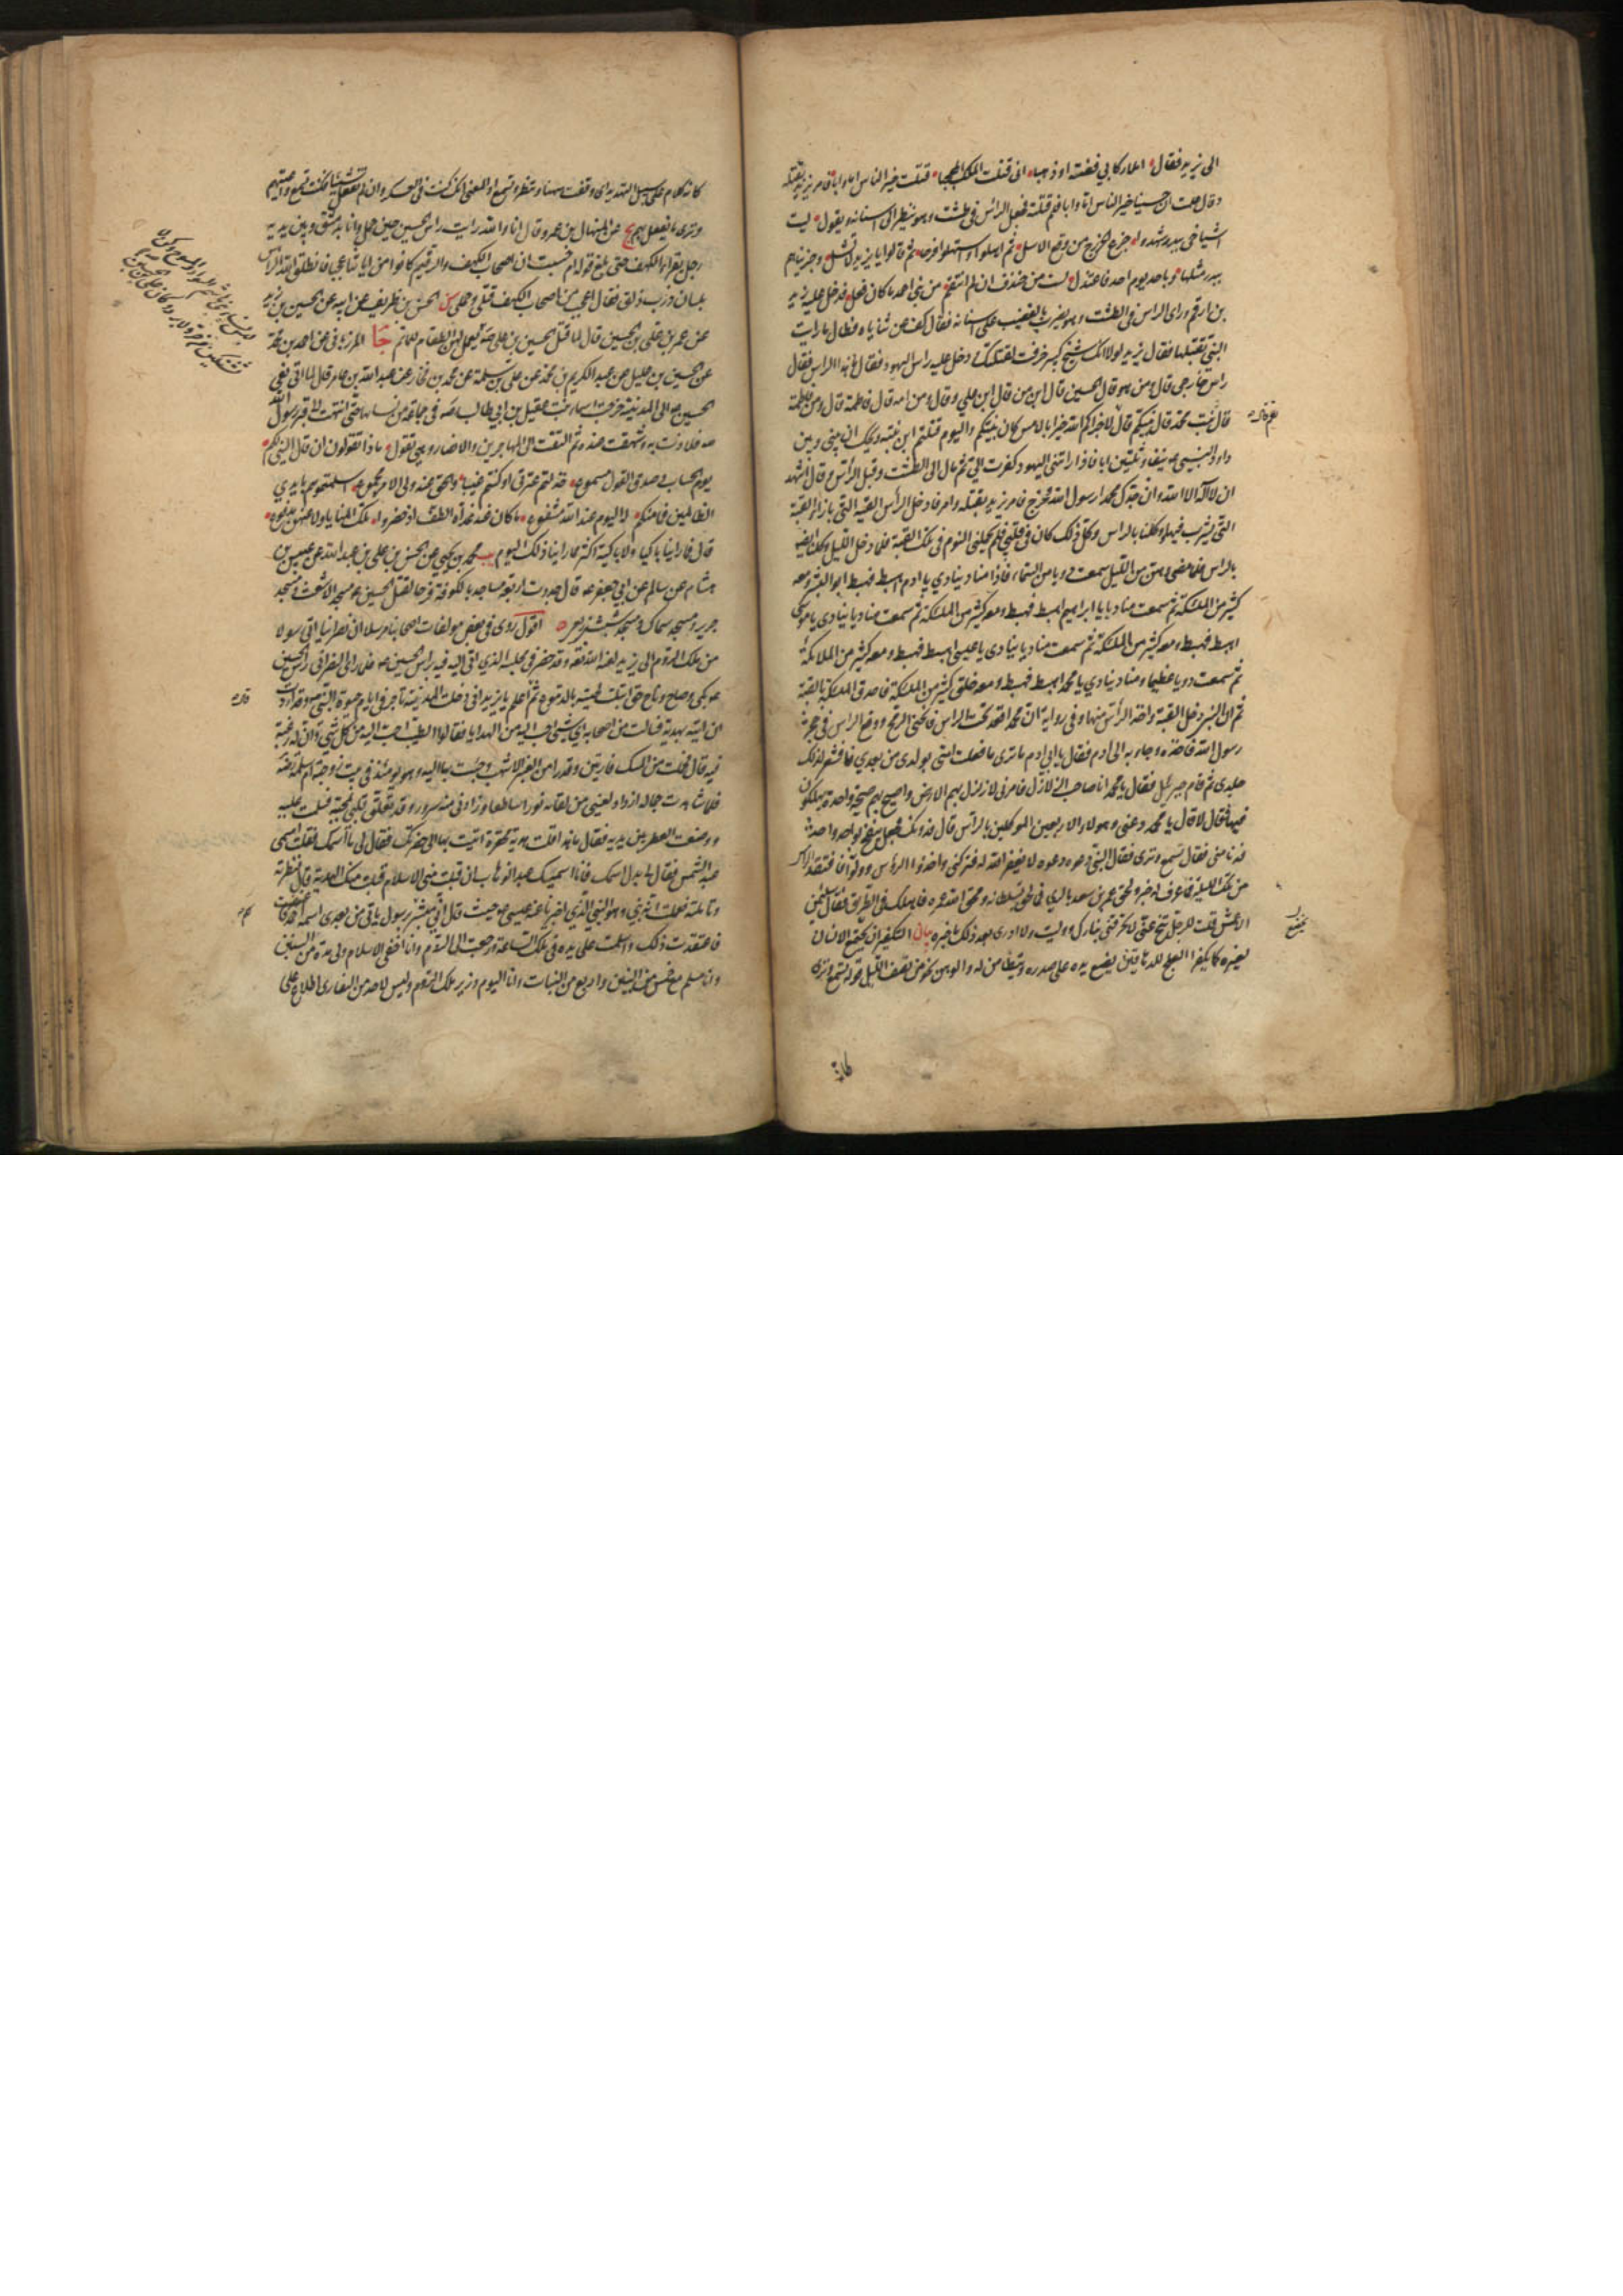 الى يزيد فقال املأ ركابي فضة او ذهبا انى قتلت الملك المحجبا قتلت خير الناس اما وابا فامر يزيد بقتله
وقال علمت ان حسينا خير الناس اما وابا فلم قتلته فجعل الراس فى طشت وهو ينظر الى اسنانه ويقول ليت
اشياخى ببدر شهدوا جزع الخزرج من وقع الاسل ثم اهلوا واستهلوا فرحا ثم قالوا يا يزيد لا تشل وجزيناهم
ببدر مثلها وباحد يوم احد فاعتدل لست من خندف ان لم انتقم من بنى احمد ما كان فعل فدخل عليه زيد
بن ارقم وراى الراس فى الطشت وهو يضرب بالقضيب على اسنانه فقال كف عن ثناياه فطال ما رايت
النبى يقبلها فقال يزيد لولا انك شيخ كبير خرفت لقتلتك ودخل عليه راس اليهود فقال ما هذا الراس فقال
راس خارجى قال ومن هو قال الحسين قال ابن من قال ابن على وقال ومن امه قال فاطمة قال ومن فاطمة
قال بنت محمد قال نبيكم قال لا جزاكم الله خيرا بالامس كان نبيكم واليوم قتلتم ابن بنته ويحك ان بينى وبين
داود النبى نيفا وثلثين ابا فاذا راتنى اليهود كفرت الى ثم مال الى الطشت وقبل الراس وقال اشهد
ان لا اله الا الله وان جدك محمدا رسول الله وخرج فامر يزيد بقتله وامر فادخل الراس القبة التى بازاء القبة
التى يشرب فيها وكلنا بالراس وكل ذلك كان فى قلبى فلم يحملنى النوم فى تلك القبة فلما دخل الليل وكلنا ايضا
بالراس فلما مضى وهن من الليل سمعت دويا من السماء فاذا مناد ينادي يا ادم اهبط فهبط ابو البشر ومعه
كثير من الملئكة ثم سمعت مناديا يا ابراهيم اهبط فهبط ومعه كثير من الملئكة ثم سمعت مناديا ينادى يا موسى
اهبط فهبط ومعه كثير من الملئكة ثم سمعت مناديا ينادى يا عيسى اهبط فهبط ومعه كثير من الملائكة
ثم سمعت دويا عظيما ومناد ينادي يا محمد اهبط فهبط ومعه خلق كثير من الملئكة فاحدق الملئكة بالقبة
ثم ان النبى دخل القبة واخذ الراس منها وفى رواية ان محمدا قعد تحت الراس فانحنى الرمح ووقع الراس فى حجر
رسول الله فاخذه وجاء به الى ادم فقال يا ابى ادم ما ترى ما فعلت امتى بولدى من بعدي فاقشعر لذلك
جلدى ثم قام جبرئيل فقال يا محمد انا صاحب الزلازل فامرنى لازلزل بهم الارض واصيح بهم صيحة واحدة يهلكون
فيها فقال لا قال يا محمد دعنى وهولاء الاربعين الموكلين بالراس قال فدونك فجعل ينفخ بواحد واحد
فدنا منى فقال تسمع وترى فقال النبى دعوه دعوه لا يغفر الله له فتركنى واخذوا الراس وولوا فافتقد الراس
من تلك الليلة فما عرف له خبر ولحق عمر بن سعد بالري فما لحق بسلطانه ومحق الله عمره فاهلك فى الطريق فقال سليمن
الاعمش قلت للرجل تنح عنى لا تحرقنى بنارك ووليت ولا ادرى بعد ذلك ما خبره بيان التكفير ان يخضع الانسان
لغيره كما يكفر العلج للدهاقين يضع يده على صدره ويتطامن له والوهن نحو من نصف الليل قوله تسمع وترى
كانه كلام على سبيل التهديد اى وقفت ههنا وتنظر وتسمع او المعنى انك كنت فى العسكر وان لم تفعل شيئا فكنت تسمع واعيتهم
وترى ما يفعل بهم يج عن المنهال بن عمرو قال انا والله رايت راس الحسين حين حمل وانا بدمشق وبين يديه
رجل يقرا الكهف حتى بلغ قوله ام حسبت ان اصحاب الكهف والرقيم كانوا من اياتنا عجبا فانطق الله الراس
بلسان ذرب ذلق فقال اعجب من اصحاب الكهف قتلى وحملى سن الحسن بن ظريف عن ابيه عن الحسين بن زيد
عن عمر بن على بن الحسين قال لما قتل الحسين بن على جا المرزبانى عن احمد بن محمد
عن الحسين بن عليل عن عبد الكريم بن محمد عن على بن سلمة عن محمد بن عن عبد الله بن عامر قال لما اتى نعى
الحسين الى المدينة خرجت اسماء بنت عقيل بن ابى طالب فى جماعة من نسائها حتى انتهت الى قبر رسول الله
فلاذت به وشهقت عنده ثم التفتت الى المهاجرين والانصار وهى تقول ماذا تقولون ان قال النبى لكم
يوم الحساب وصدق القول مسموع خذلتم عترتى او كنتم غيبا والحق عند ولى الامر مجموع اسلمتموهم بايدي
الظالمين فما منكم له اليوم عند الله مشفوع ما كان عند غداة الطف اذ حضروا تلك المنايا ولا عنهن مدفوع
قال فما راينا باكيا ولا باكية اكثر مما راينا ذلك اليوم يب محمد بن يحيى عن الحسن بن على بن عبد الله عن عبيس بن
هشام عن سالم عن ابى جعفر قال جددت اربعة مساجد بالكوفة فرحا لقتل الحسين مسجد الاشعث ومسجد
جرير ومسجد سماك ومسجد شبث بن ربعى اقول روى فى بعض مولفات اصحابنا مرسلا ان نصرانيا اتى رسولا
من ملك الروم الى يزيد لعنه الله وقد حضر فى مجلسه الذي اتى اليه فيه براس الحسين فلما راى النصرانى راس الحسين
بكى وصاح وناح حتى ابتلت لحيته بالدموع ثم قال اعلم يا يزيد انى دخلت المدينة تاجرا فى ايام حيوة النبى وقد اردت
ان اتيه بهدية فسالت من اصحابه اي شىء احب اليه من الهدايا فقالوا الطيب احب اليه من كل شىء وان له رغبة
فيه قال فحملت من المسك فارتين وقدرا من العنبر الاشهب وجئت بها اليه وهو يومئذ فى بيت زوجته ام سلمة
فلما شاهدت جماله ازداد لعينى من لقائه نورا ساطعا وزادنى منه سرور وقد تعلق قلبى بمحبته فسلمت عليه
ووضعت العطر بين يديه فقال ما هذا قلت هدية محقرة اتيت بها الى حضرتك فقال لى ما اسمك فقلت اسمى
عبد الشمس فقال لى بدل اسمك فانا اسميك عبد الوهاب ان قبلت منى الاسلام قبلت منك الهدية قال فنظرته
وتاملته فعلمت انه نبى وهو النبى الذي اخبرنا عنه عيسى حيث قال انى مبشر برسول ياتى من بعدى اسمه احمد
فاعتقدت ذلك واسلمت على يده فى تلك الساعة ورجعت الى الروم وانا اخفى الاسلام ولى مدة من السنين
وانا مسلم مع خمس من البنين واربع من البنات وانا اليوم وزير ملك الروم وليس لاحد من النصارى اطلاع على